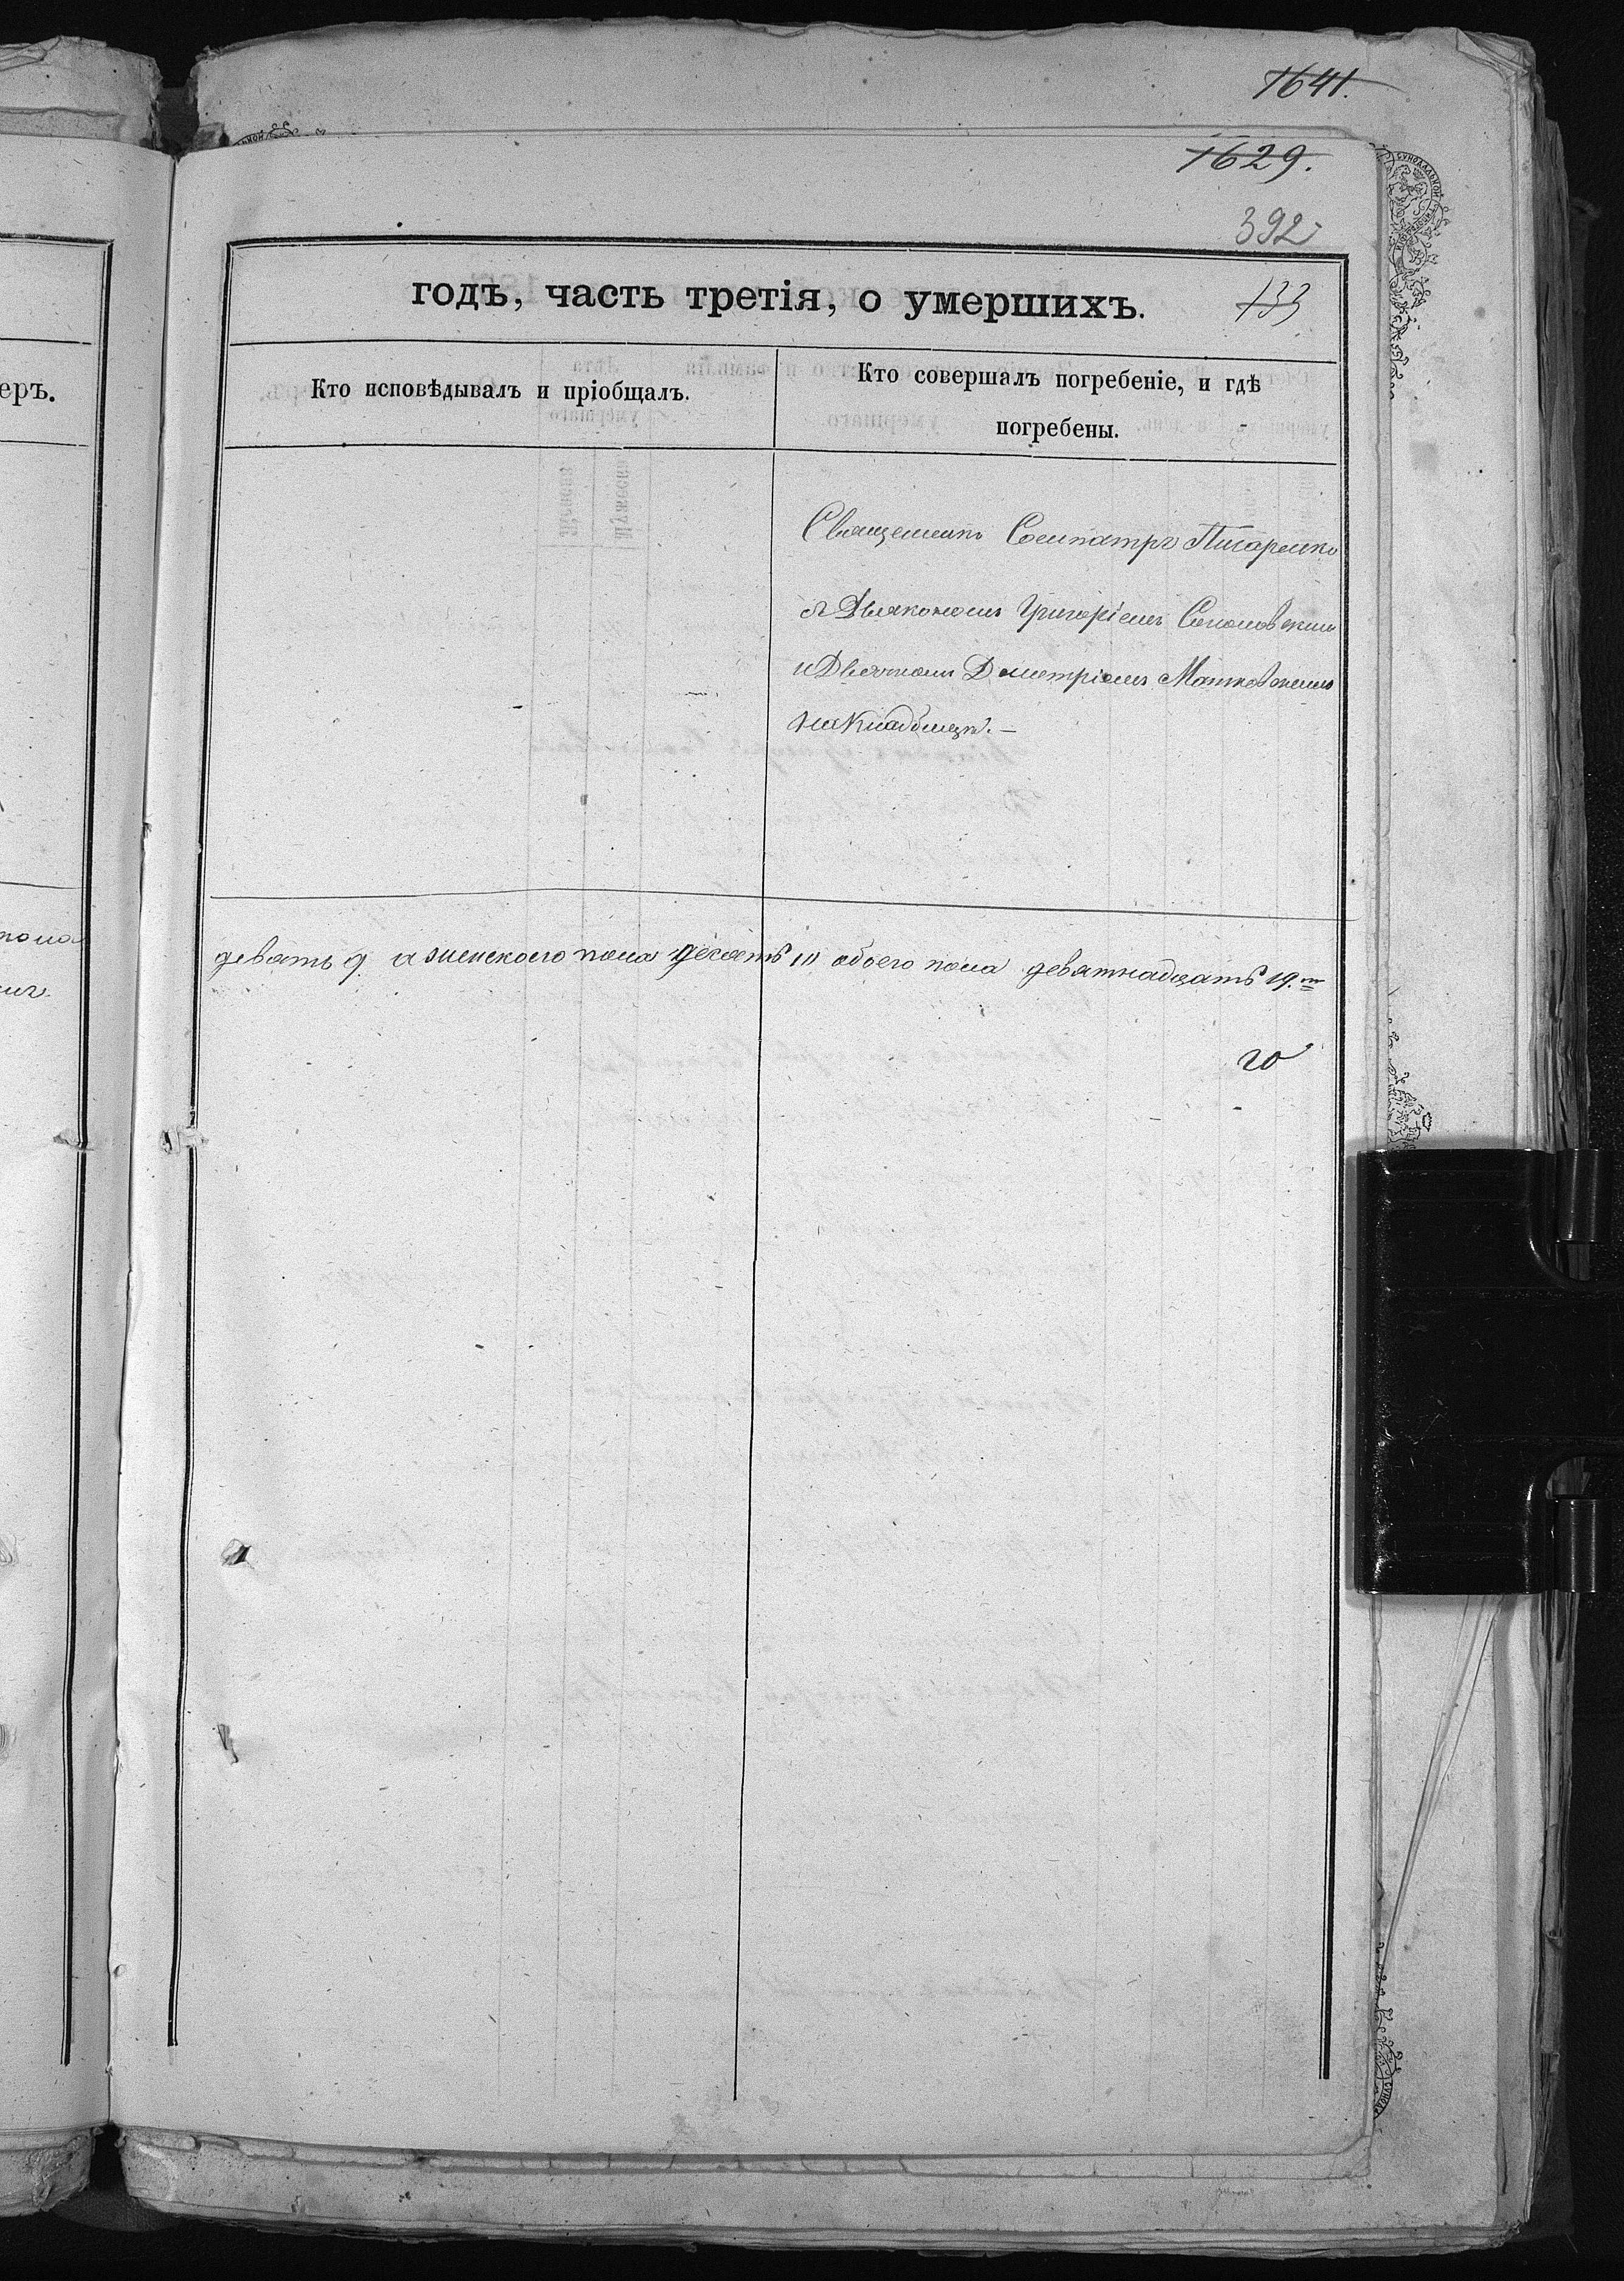 1641.
1629.
392
133
годъ, часть третія, о умершихъ.
еръ.
Кто исповѣдывалъ и пріобщалъ.
Кто совершалъ погребеніе, и гдѣ
погребены.
Священникъ Сосипатръ Писаренко
съ Діякономъ Григоріемъ Соколовскимъ
и Дьячкомъ Димитріемъ Матковскимъ
на кладбищѣ. —
пола
девять 9 а женскаго пола десять 10 обоего пола девятнадцать 19.
20